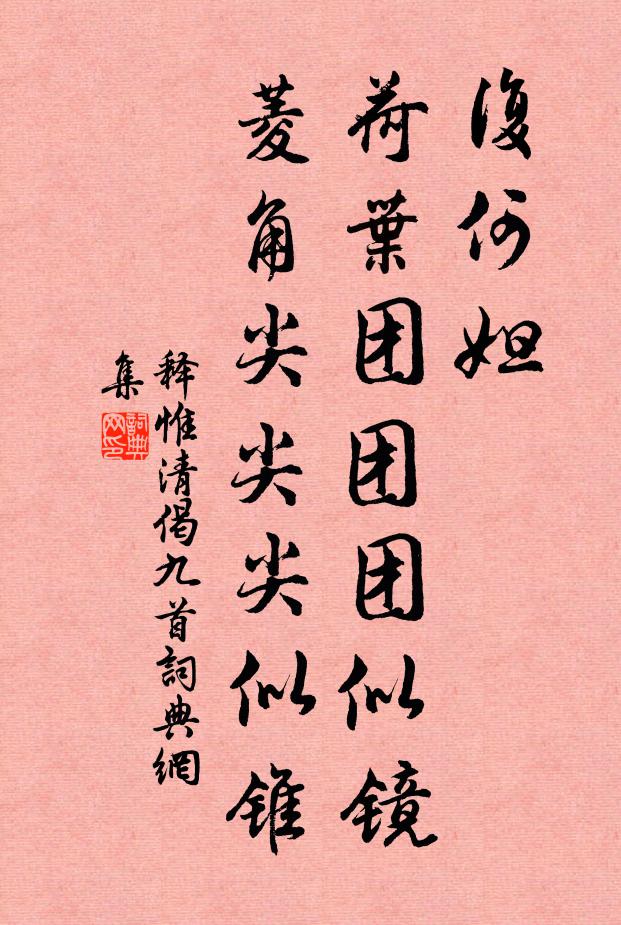 復何妲
荷葉团团团似镜
菱角尖尖尖似锥
释惟清偈九首詞典網
集
詞典
网印